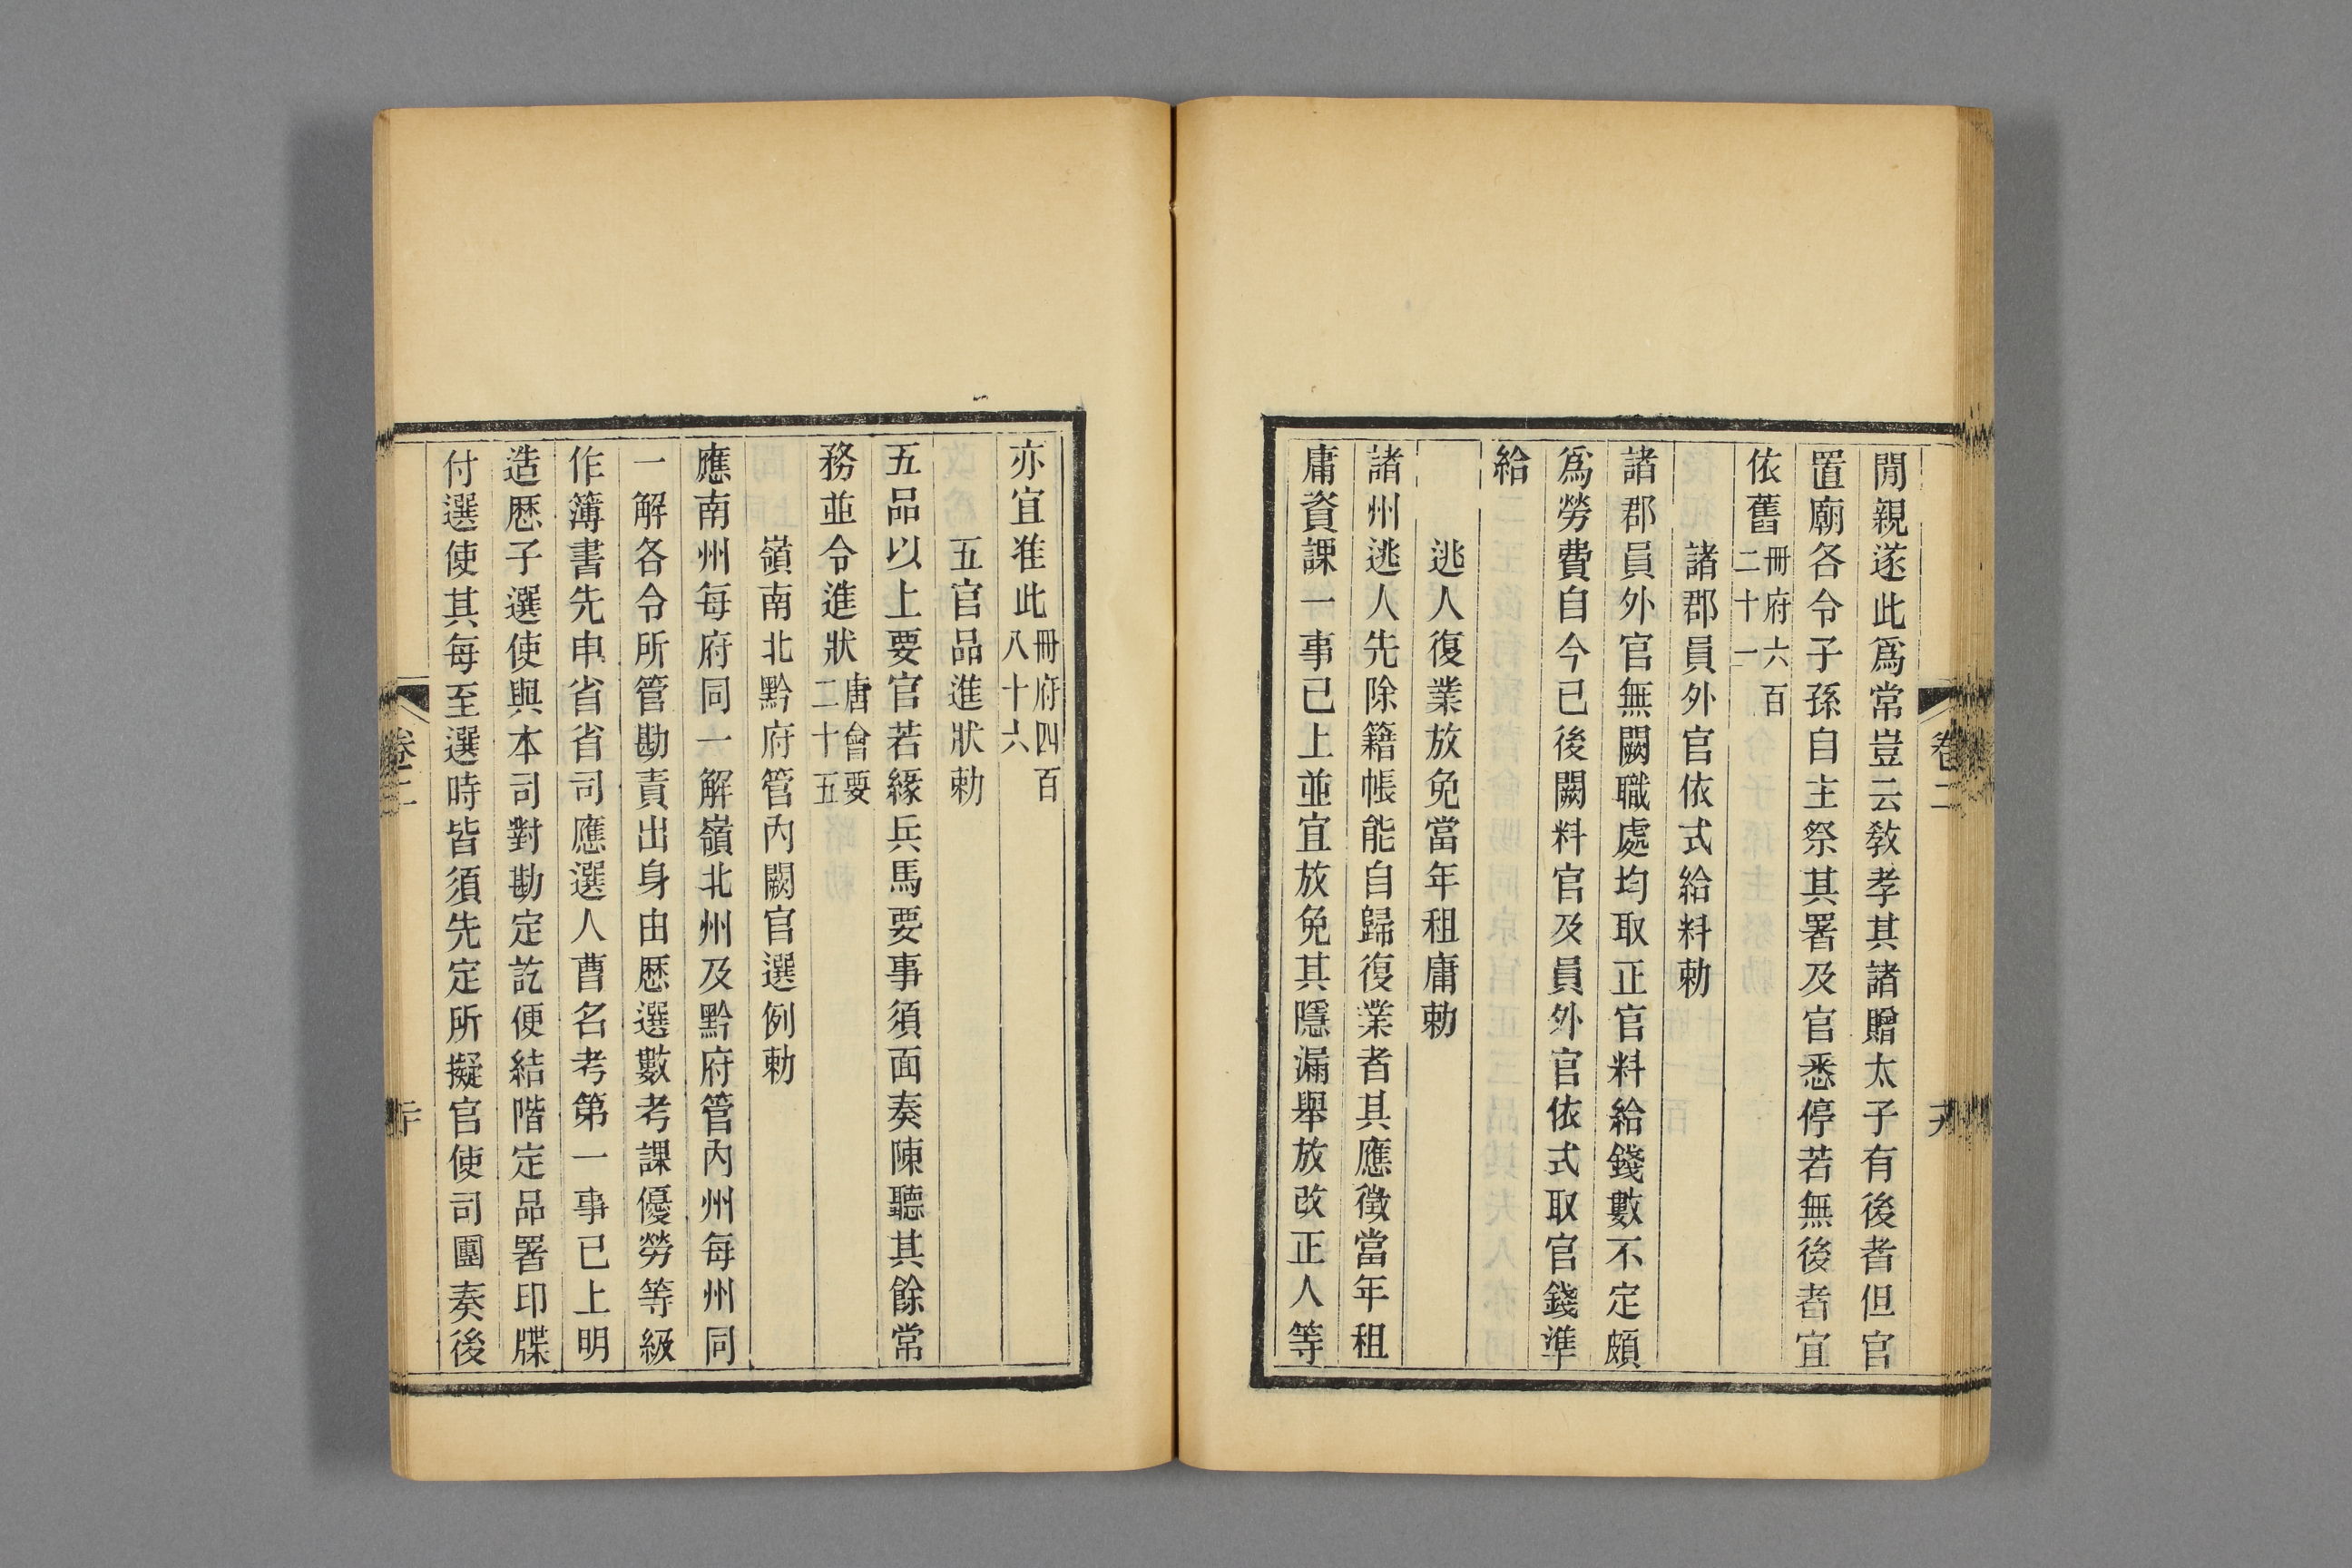 閒親遂此爲常豈云敎孝其諸贈太子有後者但官
置廟各令子孫自主祭其署及官悉停若無後者宜
依舊冊府六百二十一
諸郡員外官依式給料勅
諸郡員外官無闕職處均取正官料給錢數不定頗
爲勞費自今已後闕料官及員外官依式取官錢準
給
逃人復業放免當年租庸勅
諸州逃人先除籍帳能自歸復業者其應徵當年租
庸資課一事已上並宜放免其隱漏舉放改正人等
亦宜准此冊府四百八十六
五官品進狀勅
五品以上要官若緣兵馬要事須面奏陳聽其餘常
務並令進狀唐會要二十五
嶺南北黔府管內闕官選例勅
應南州每府同一解嶺北州及黔府管內州每州同
一解各令所管勘責出身由歷選數考課優勞等級
作簿書先申省省司應選人曹名考第一事已上明
造歷子選使與本司對勘定訖便結階定品署印牒
付選使其每至選時皆須先定所擬官使司團奏後
卷二